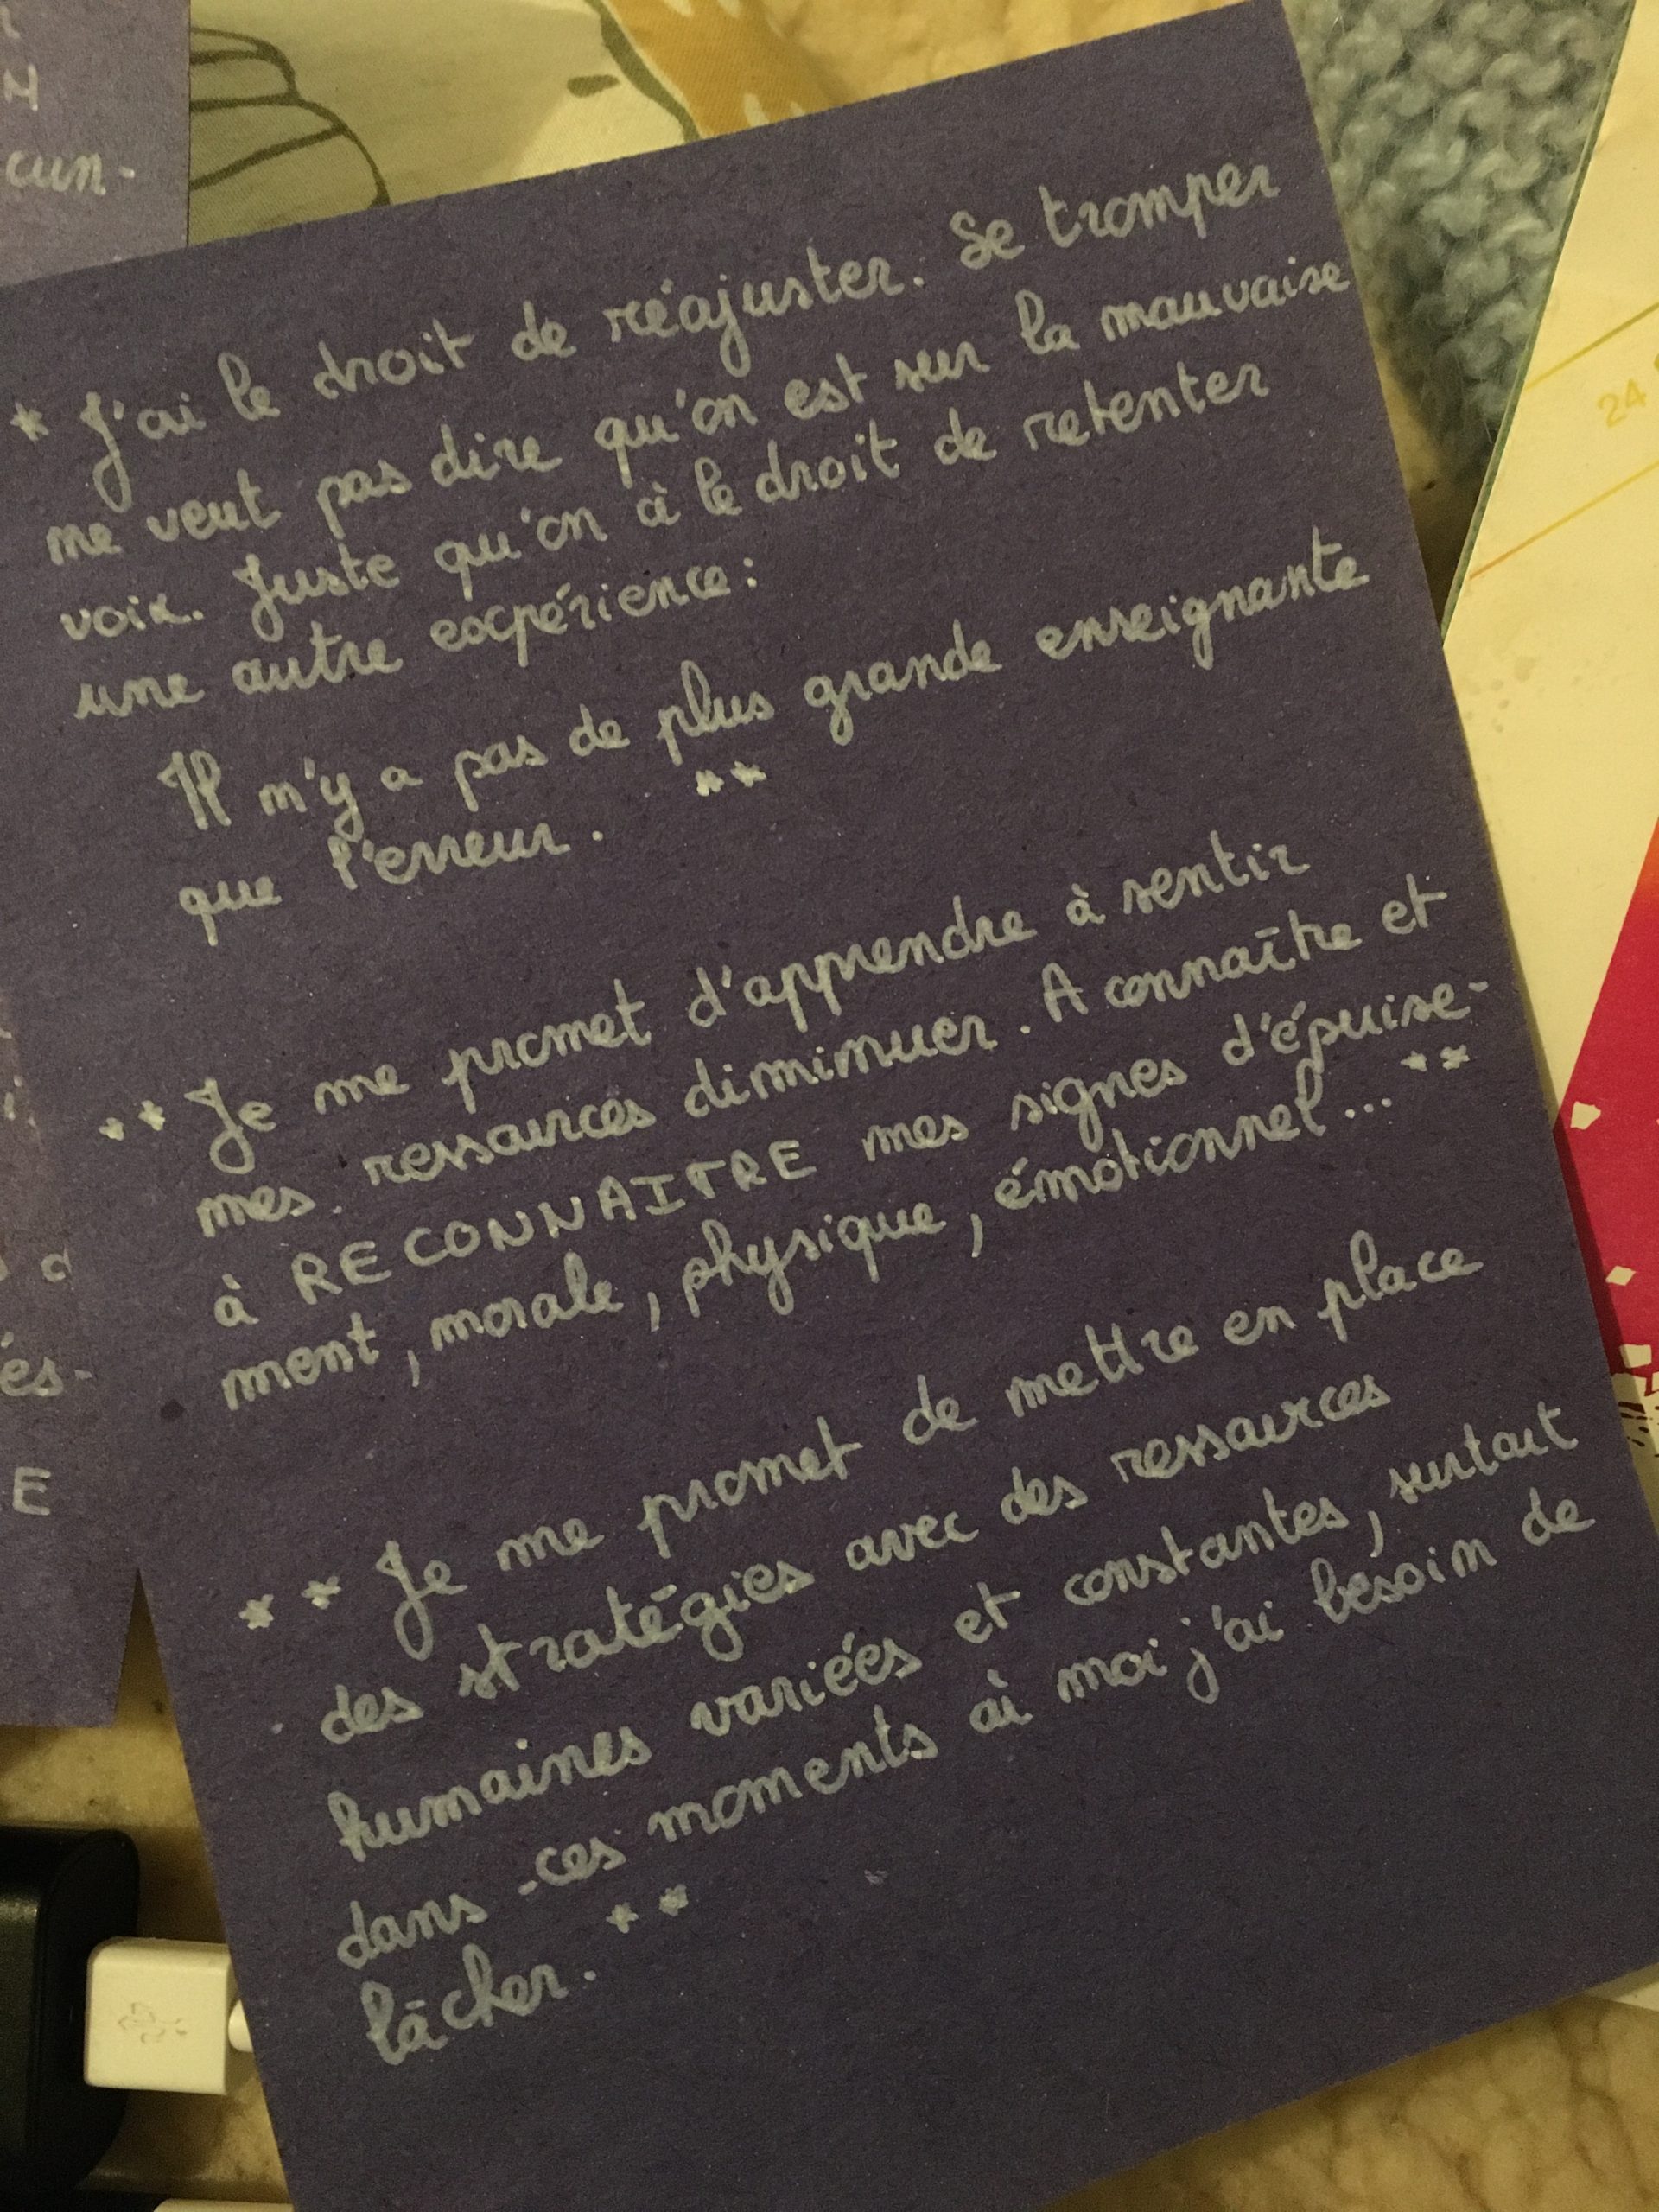 N
cun-
* J'ai le droit de réajuster. Se tromper
ne veut pas dire qu'on est sur la mauvaise
voix. Juste qu'on à le droit de retenter
une autre expérience :
Il n'y a pas de plus grande enseignante
que l'erreur. **
** Je me promet d'apprendre à sentir
mes ressources diminuer. A connaître et
à RECONNAITRE mes signes d'épuise-
ment, morale, physique, émotionnel... **
** Je me promet de mettre en place
des stratégies avec des ressources
humaines variées et constantes, surtout
dans ces moments où moi j'ai besoin de
lâcher. **
d
és-
E
24